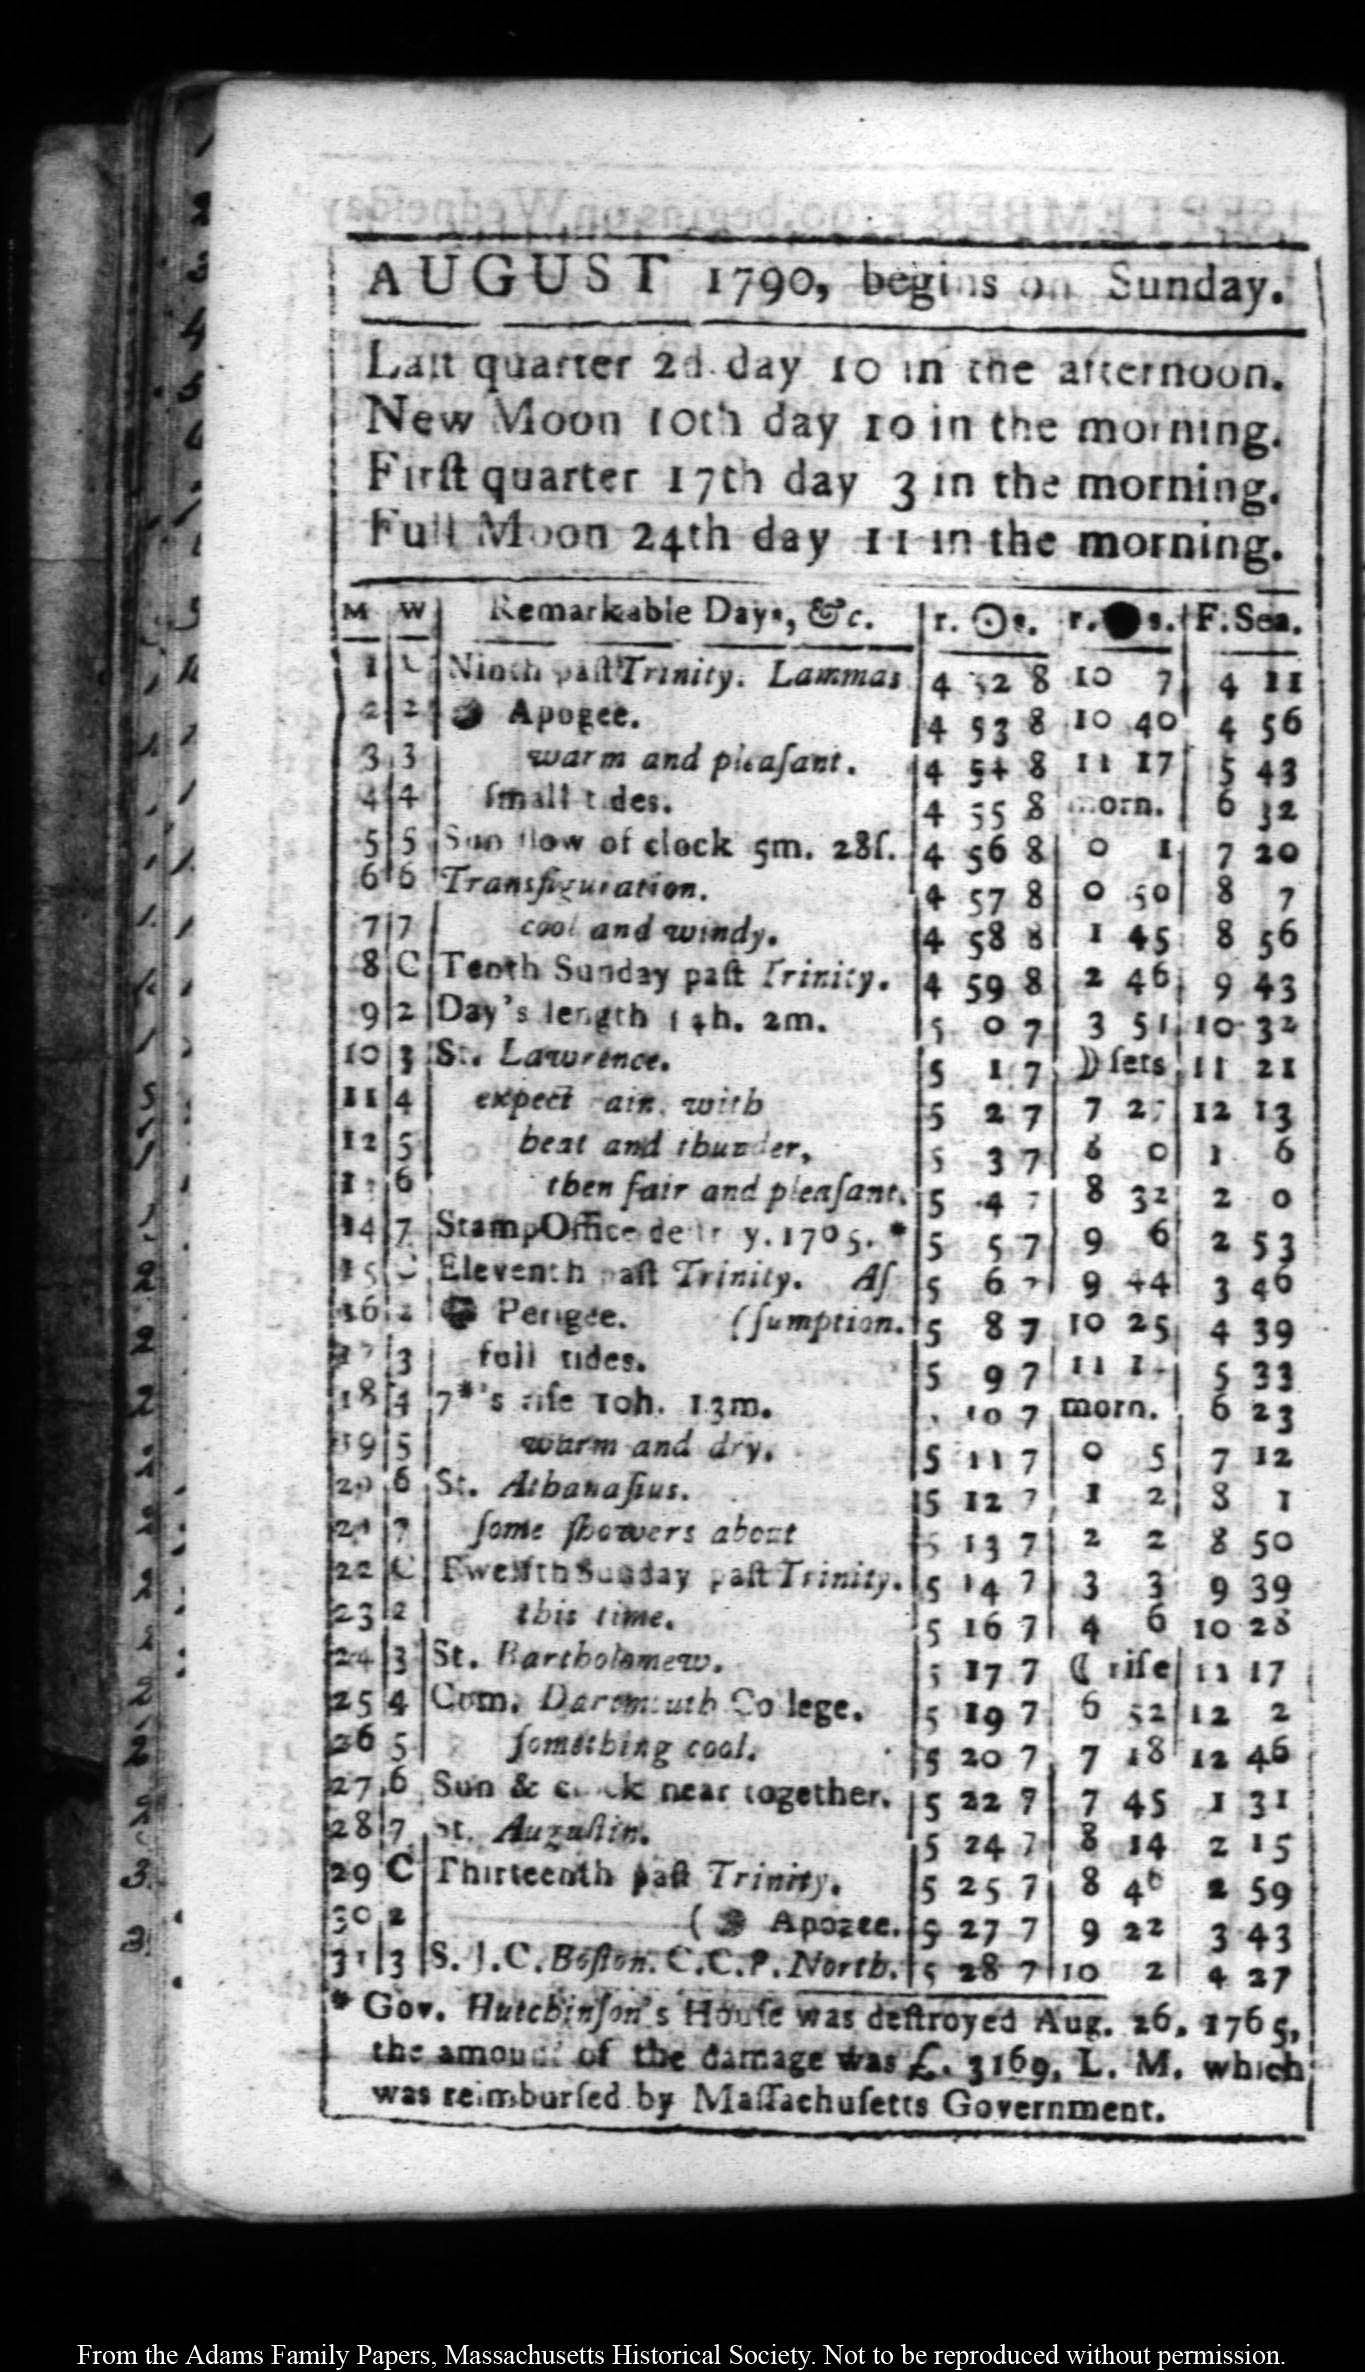 AUGUST 1790, begins on Sunday.
Laſt quarter 2d day 10 in the afternoon.
New Moon 10th day 10 in the morning.
Firſt quarter 17th day 3 in the morning.
Full Moon 24th day 11 in the morning.
M W Remarkable Days, &c. r. ☉ s. r. ● s. F. Sea.
1 C Ninth paſt Trinity. Lammas 4 52 8 10 7 4 11
2 2 ● Apogee. 4 53 8 10 40 4 56
3 3 warm and pleaſant. 4 54 8 11 17 5 43
4 4 ſmall tides. 4 55 8 morn. 6 32
5 5 Sun ſlow of clock 5m. 28ſ. 4 56 8 0 1 7 20
6 6 Transfiguration. 4 57 8 0 50 8 7
7 7 cool and windy. 4 58 8 1 45 8 56
8 C Tenth Sunday paſt Trinity. 4 59 8 2 46 9 43
9 2 Day's length 14h. 2m. 5 0 7 3 51 10 32
10 3 St. Lawrence. 5 1 7 ☽ ſets 11 21
11 4 expect rain, with 5 2 7 7 27 12 13
12 5 heat and thunder, 5 3 7 8 0 1 6
13 6 then fair and pleaſant. 5 4 7 8 32 2 0
14 7 Stamp Office y. 5 5 7 9 6 2 53
15 C Eleventh paſt Trinity. Aſ 5 6 7 9 44 3 46
16 2 ● Perigee. (ſumption. 5 8 7 10 25 4 39
17 3 full tides. 5 9 7 11 5 33
18 4 7*'s riſe 10h. 13m. 10 7 morn. 6 23
19 5 warm and dry. 5 11 7 0 5 7 12
20 6 St. Athanaſius. 5 12 7 1 2 8 1
21 7 ſome ſhowers about 5 13 7 2 2 8 50
22 C Twelfth Sunday paſt Trinity. 5 14 7 3 3 9 39
23 2 this time. 5 16 7 4 6 10 28
24 3 St. Bartholomew. 5 17 7 ☾ riſe 11 17
25 4 Com. Dartmouth College. 5 19 7 6 52 12 2
26 5 ſomething cool. 5 20 7 7 18 12 46
27 6 Sun & clock near together. 5 22 7 7 45 1 31
28 7 St. Auguſtin. 5 24 7 8 14 2 15
29 C Thirteenth paſt Trinity. 5 25 7 8 46 2 59
30 2 (● Apogee. 5 27 7 9 22 3 43
31 3 S. J. C. Boſton. C.C.P. North. 5 28 7 10 2 4 27
* Gov. Hutchinſon's Houſe was deſtroyed Aug. 26, 1765,
the amount of the damage was £. 3169, L. M. which
was reimburſed by Maſſachuſetts Government.
From the Adams Family Papers, Massachusetts Historical Society. Not to be reproduced without permission.